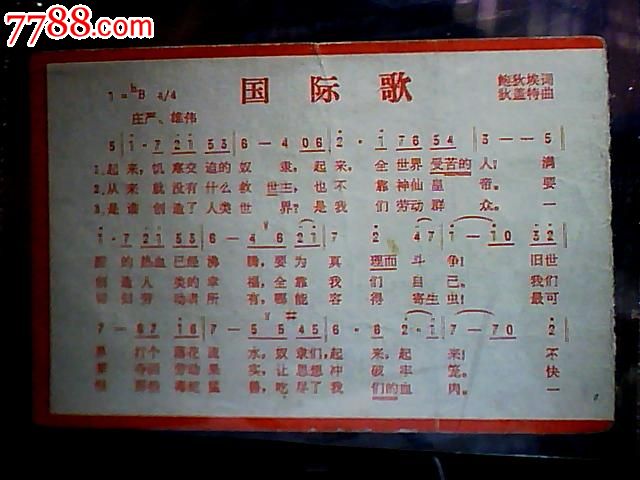 7788.com
国际歌
1=♭B 4/4
鲍狄埃词
狄盖特曲
庄严、雄伟
5 1·7 2 1 5 3 6—4 0 6 2·1 7 6 5 4 3——5
1.起来,饥寒交迫的奴隶,起来,全世界受苦的人!满
2.从来就没有什么救世主,也不靠神仙皇帝。要
3.是谁创造了人类世界?是我们劳动群众。一
1·7 2 1 5 3 6—4 6 2 1 7 2 4 7 1—1 0 3 2
的热血已经沸腾,要为真理而斗争!旧世
创造人类的幸福,全靠我们自己。我们
劳动者所有,哪能容得寄生虫!最可
7—6 7 1 6 7—5 5 4 5 6·6 2·1 7—7 0 2
打个落花流水,奴隶们,起来,起来!不
劳动果实,让思想冲破牢笼。快
毒蛇猛兽,吃尽了我们的血肉。一